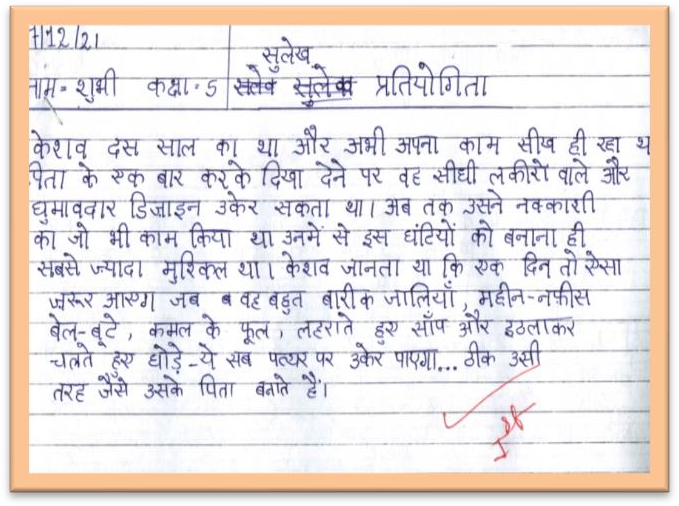 7/12/21
सुलेख
नाम- शुभी कक्षा-5 सुलेख प्रतियोगिता
केशव दस साल का था और अभी अपना काम सीख ही रहा थ
पिता के एक बार करके दिखा देने पर वह सीधी लकीरो वाले और
घुमावदार डिजाइन उकेर सकता था। अब तक उसने नक्काशी
का जो भी काम किया था उनमें से इस घंटियों को बनाना ही
सबसे ज्यादा मुश्किल था। केशव जानता था कि एक दिन तो ऐसा
ज़रूर आएग जब वह बहुत बारीक जालियाँ, महीन-नफ़ीस
बेल-बूटे, कमल के फूल, लहराते हुए साँप और इठलाकर
चलते हुए घोड़े-ये सब पत्थर पर उकेर पाएगा... ठीक उसी
तरह जैसे उसके पिता बनाते हैं।
Ist